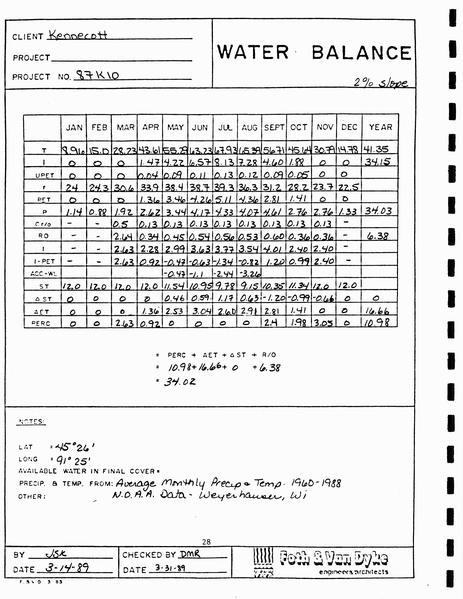 CLIENT Kennecott
PROJECT
PROJECT NO. 87K10
WATER BALANCE
2% slope
JAN FEB MAR APR MAY JUN JUL AUG SEPT OCT NOV DEC YEAR
T 15.0 28.23 43.61 55.29 63.23 67.93 56.71 45.64 30.79 14.78 41.35
I 0 0 0 1.47 4.22 6.57 8.13 7.28 4.60 1.88 0 0 34.15
UPET 0 0 0 0.04 0.09 0.11 0.13 0.12 0.09 0.05 0 0
r 24 24.3 30.6 33.9 38.4 38.7 39.3 36.3 31.2 28.2 23.7 22.5
PET 0 0 0 1.36 3.46 4.26 5.11 4.36 2.81 1.41 0 0
P 1.14 0.88 1.92 2.62 3.44 4.17 4.33 4.07 4.61 2.76 2.76 1.33 34.03
C r/o - - 0.5 0.13 0.13 0.13 0.13 0.13 0.13 0.13 0.13 -
RO - - 2.64 0.34 0.45 0.54 0.56 0.53 0.60 0.36 0.36 - 6.38
I - - 2.63 2.28 2.99 3.63 3.77 3.54 4.01 2.40 2.40 -
I-PET - - 2.63 0.92 -0.47 -0.63 -1.34 -0.82 1.20 0.99 2.40 -
ACC-WL -0.47 -1.1 -2.44 -3.26
ST 12.0 12.0 12.0 12.0 11.54 10.95 9.78 9.15 10.35 11.34 12.0 12.0
Δ ST 0 0 0 0 0.46 0.59 1.17 0.63 -1.20 -0.99 -0.66 0 0
AET 0 0 0 1.36 2.53 3.04 2.60 2.91 2.81 1.41 0 0 16.66
PERC 0 0 2.63 0.92 0 0 0 0 2.4 1.98 3.05 0 10.98
= PERC + AET + Δ ST + R/O
= 10.98 + 16.66 + 0 + 6.38
= 34.02
NOTES:
LAT = 45° 26'
LONG = 91° 25'
AVAILABLE WATER IN FINAL COVER =
PRECIP. & TEMP. FROM: Average Monthly Precip & Temp. 1960-1988
OTHER: N.O.A.A. Data - Weyerhauser, Wi
28
BY JSK
CHECKED BY DMR
DATE 3-14-89
DATE 3-31-89
Foth & Van Dyke
engineers/architects